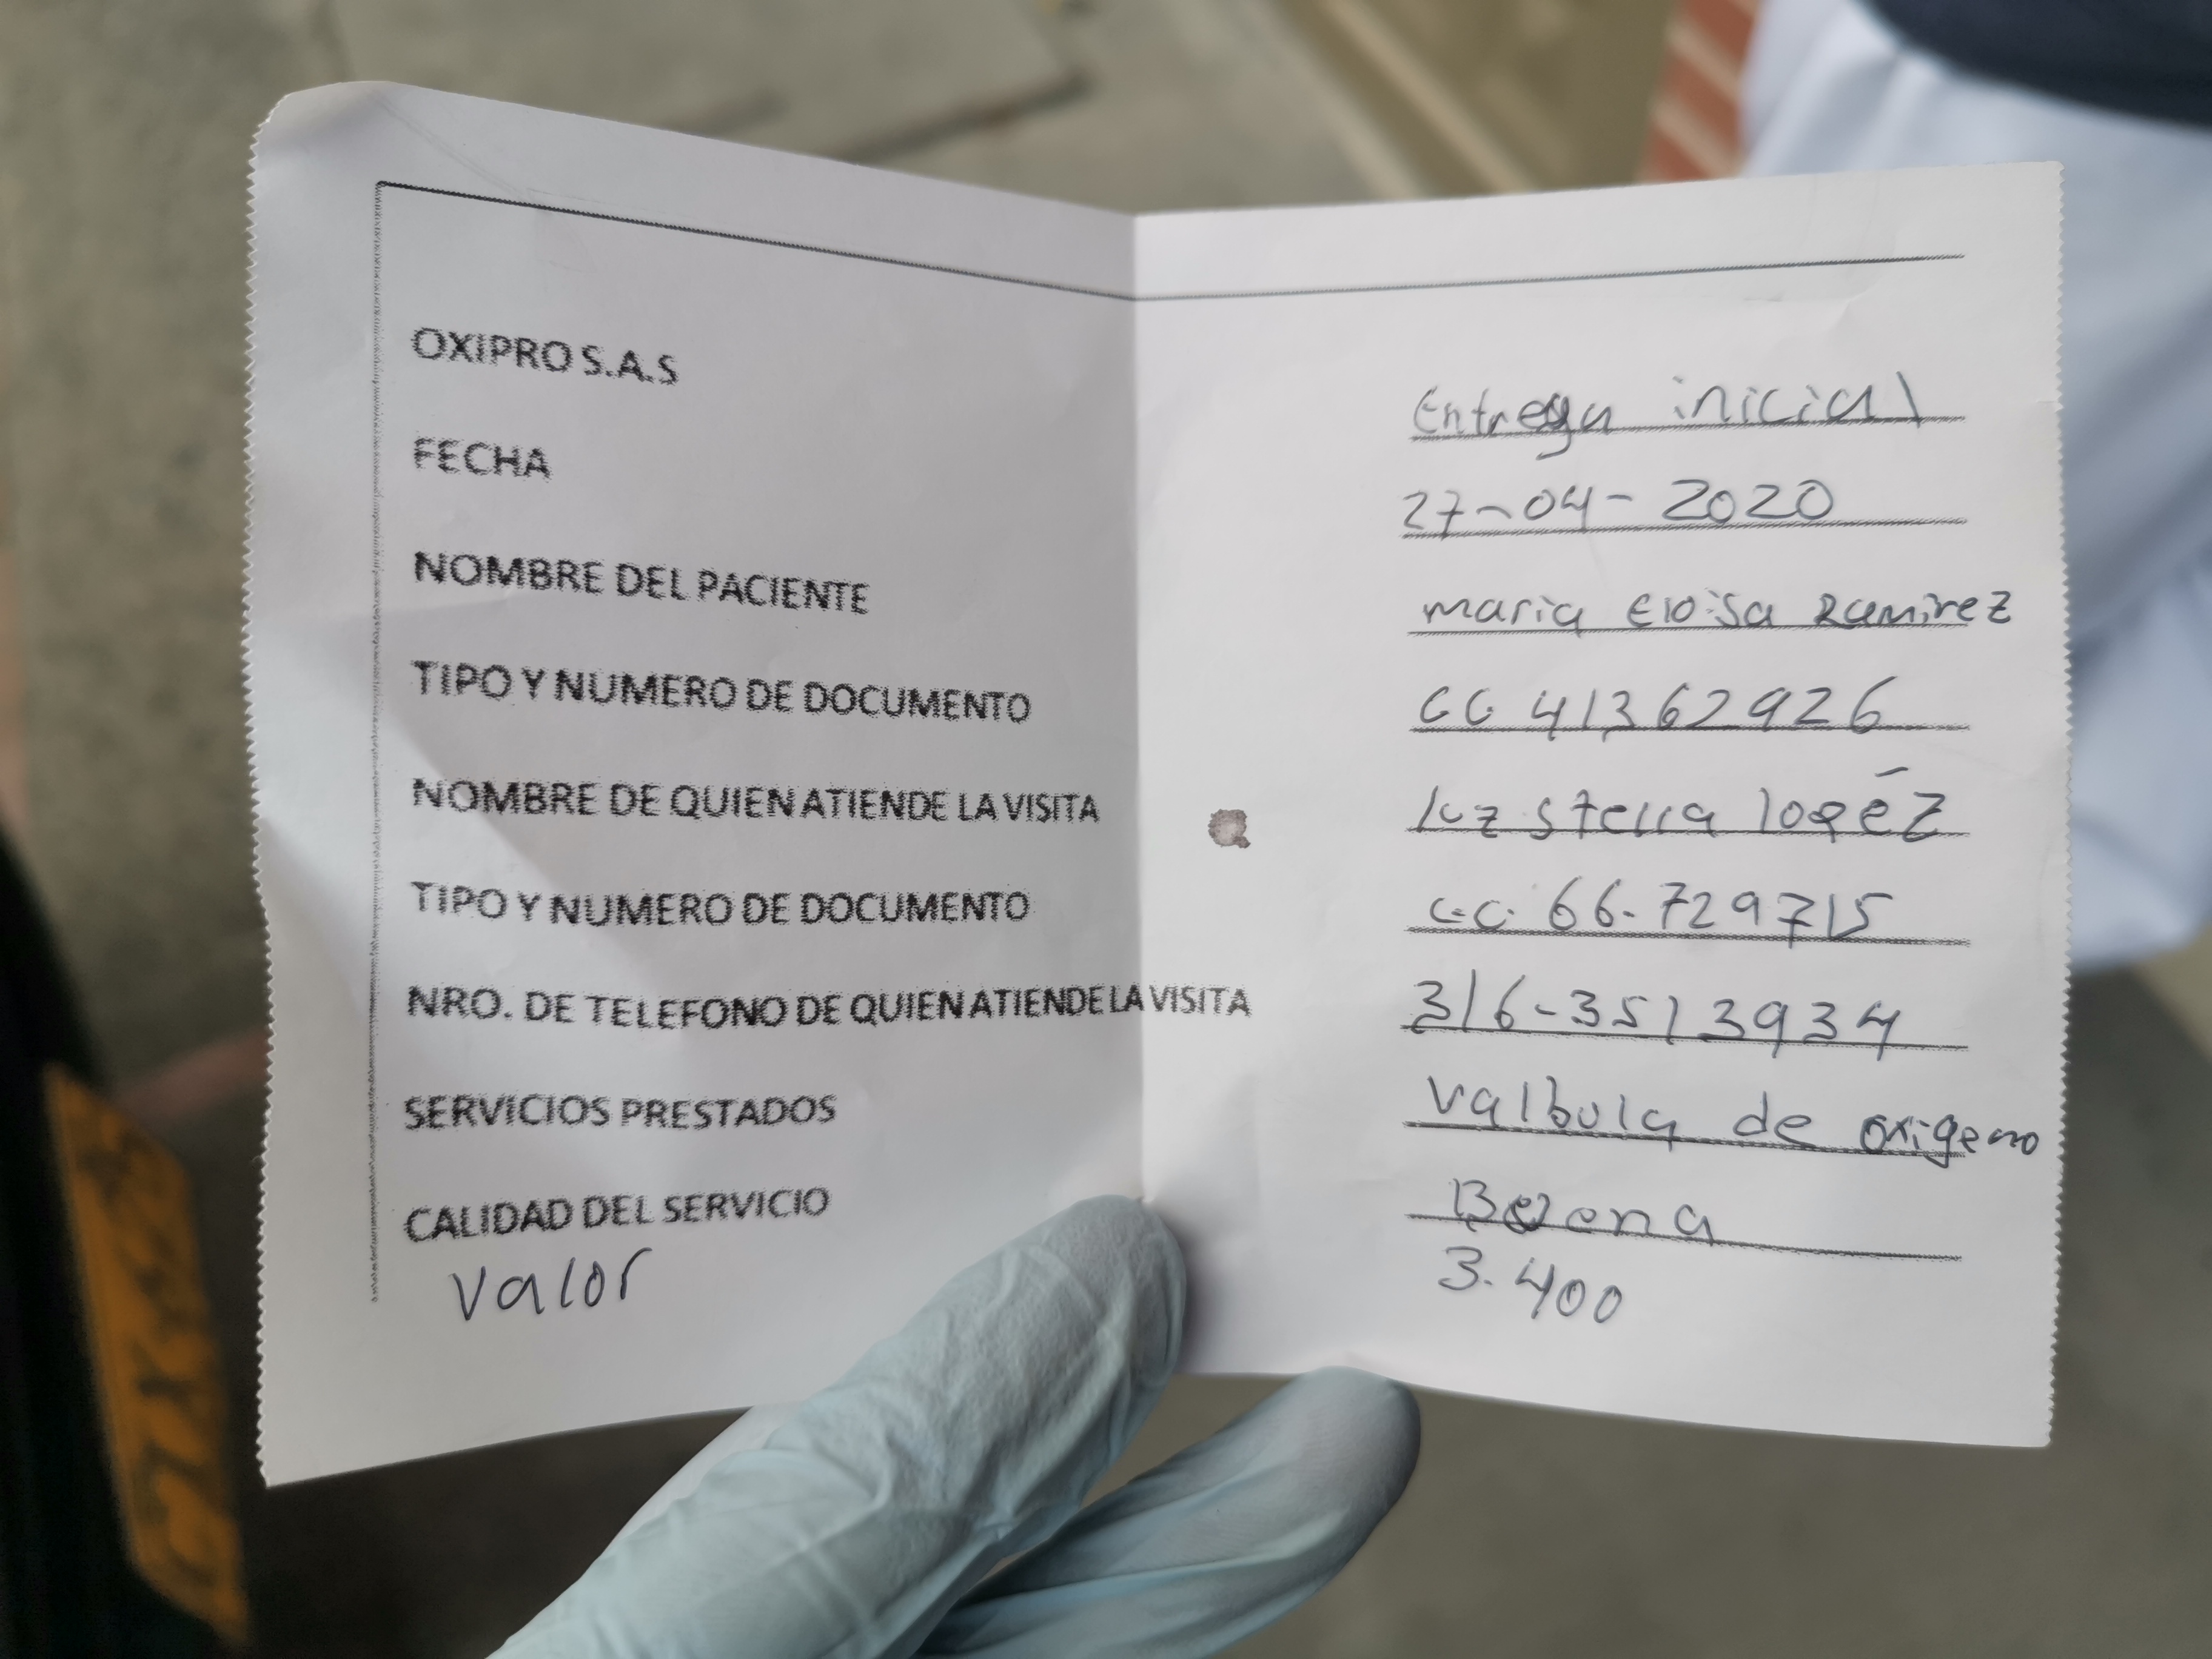 OXIPRO S.A.S Entrega inicial
FECHA 27-04-2020
NOMBRE DEL PACIENTE maria Eloisa Ramirez
TIPO Y NUMERO DE DOCUMENTO CC 41362926
NOMBRE DE QUIEN ATIENDE LA VISITA luz stella lopéz
TIPO Y NUMERO DE DOCUMENTO C.C. 66.729715
NRO. DE TELEFONO DE QUIEN ATIENDE LA VISITA 316-3513934
SERVICIOS PRESTADOS Valbula de oxigeno
CALIDAD DEL SERVICIO Buena
Valor 3.400